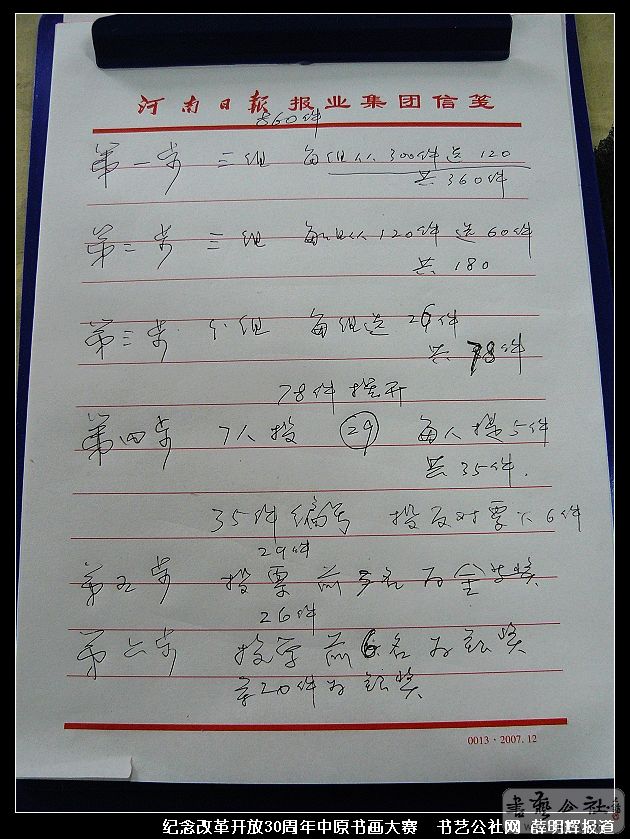 河南日报报业集团信笺
860件
第一步 三组 每组从300件选120
共360件
第二步 三组 每组从120件选60件
共180
第三步 分组 每组选26件
共78件
78件摆开
第四步 7人投 29 每人提5件
共35件.
35件编号 投反对票下6件
29件
第五步 投票前3名为金奖
26件
第六步 投票前6名为银奖
余20件为铜奖
0013·2007.12
书艺公社
纪念改革开放30周年中原书画大赛 书艺公社网 薛明辉报道